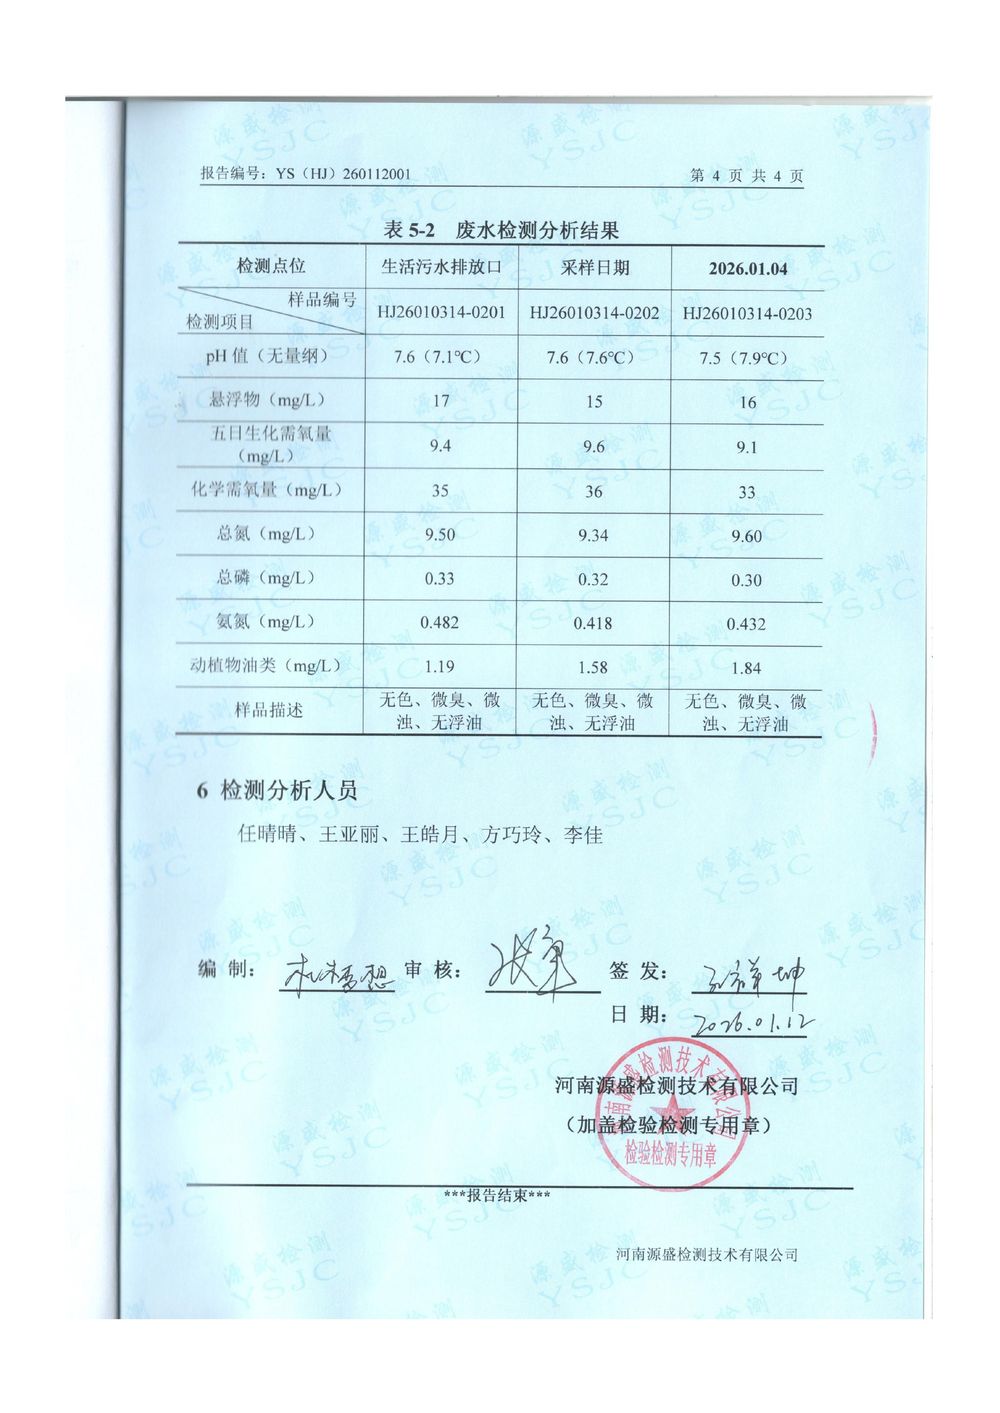 报告编号：YS（HJ）260112001
第 4 页 共 4 页
表 5-2 废水检测分析结果
检测点位 生活污水排放口 采样日期 2026.01.04
样品编号
检测项目
HJ26010314-0201 HJ26010314-0202 HJ26010314-0203
pH 值（无量纲） 7.6（7.1℃） 7.6（7.6℃） 7.5（7.9℃）
悬浮物（mg/L） 17 15 16
五日生化需氧量
（mg/L）
9.4 9.6 9.1
化学需氧量（mg/L） 35 36 33
总氮（mg/L） 9.50 9.34 9.60
总磷（mg/L） 0.33 0.32 0.30
氨氮（mg/L） 0.482 0.418 0.432
动植物油类（mg/L） 1.19 1.58 1.84
样品描述
无色、微臭、微 无色、微臭、微 无色、微臭、微
浊、无浮油 浊、无浮油 浊、无浮油
6 检测分析人员
任晴晴、王亚丽、王皓月、方巧玲、李佳
编 制： 审 核： 签 发：
日 期： 2026.01.12
河南源盛检测技术有限公司
（加盖检验检测专用章）
河南源盛检测技术有限公司
检验检测专用章
***报告结束***
河南源盛检测技术有限公司
源盛检测
YSJC